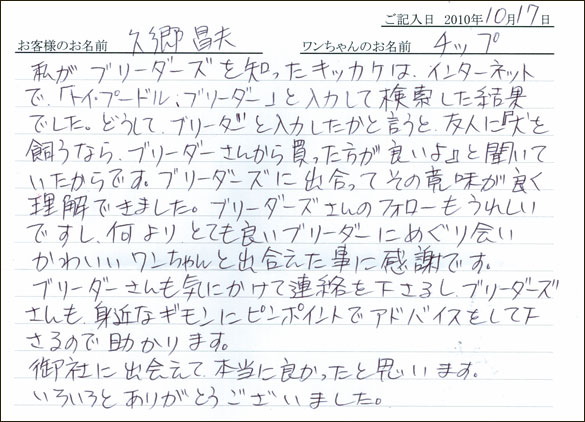 ご記入日 2010年10月17日
お客様のお名前 久郷昌夫 ワンちゃんのお名前 チップ
私がブリーダーズを知ったキッカケは、インターネット
で、「トイ・プードル、ブリーダー」と入力して検索した結果
でした。どうして、ブリーダーと入力したかと言うと、友人に『犬を
飼うなら、ブリーダーさんから買った方が良いよ』と聞いて
いたからです。ブリーダーズに出合ってその意味が良く
理解できました。ブリーダーズさんのフォローもうれしい
ですし、何よりとても良いブリーダーにめぐり会い
かわいいワンちゃんと出合えた事に感謝です。
ブリーダーさんも気にかけて連絡を下さるし、ブリーダーズ
さんも、身近なギモンにピンポイントでアドバイスをして下
さるので助かります。
御社に出会えて、本当に良かったと思います。
いろいろとありがとうございました。